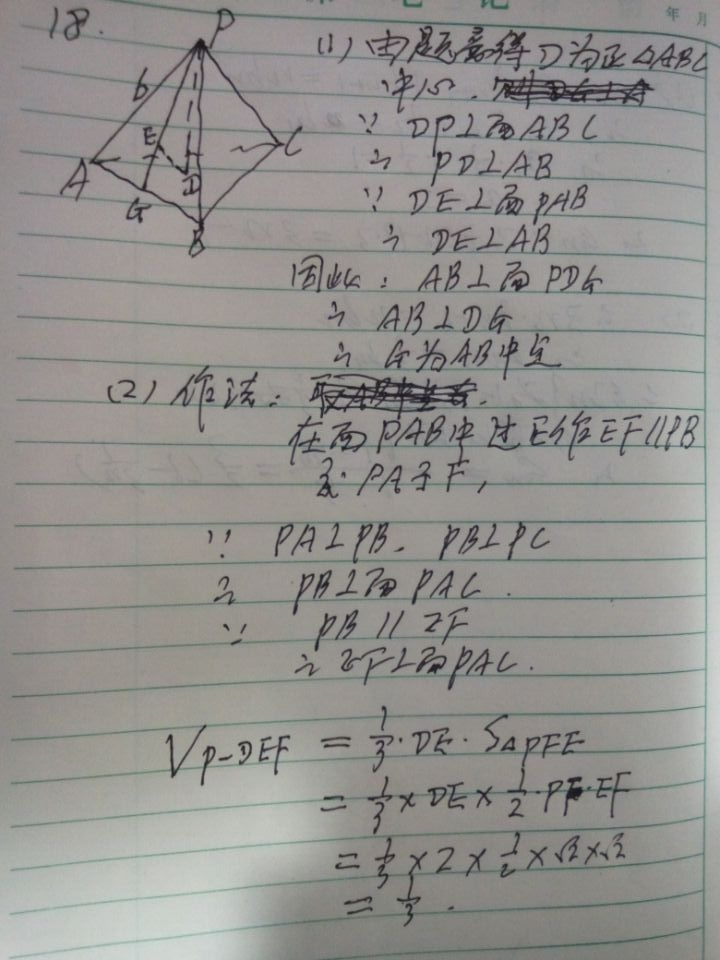 年 月
18.
P
6
E
A
C
D
G
B
(1) 由题意得D为正△ABC
中心.
∵ DP⊥面ABC
∴ PD⊥AB
∵ DE⊥面PAB
∴ DE⊥AB
因此: AB⊥面PDG
∴ AB⊥DG
∴ G为AB中点
(2) 作法:
在面PAB中过E作EF∥PB
交PA于F,
∵ PA⊥PB. PB⊥PC
∴ PB⊥面PAC.
∵ PB∥EF
∴ EF⊥面PAC.
V_{P-DEF} = 1/3·DE·S△PFE
= 1/3×DE×1/2·PF·EF
= 1/3×2×1/2×√2×√2
= 1/3.